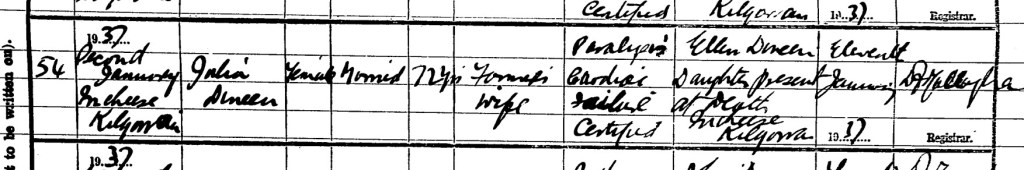 Certified Kilgorvan 1937. Registrar.
t to be written on).
1937.
54
Second
January
Incheese
Kilgarvan
Julia
Dineen
Female
Married
72 yrs
Farmer's
wife
Paralysis
Cardiac
failure
Certified
Ellen Dineen
Daughter present
at Death
Incheese
Kilgarvan
Eleventh
January
1937.
Registrar.
1937